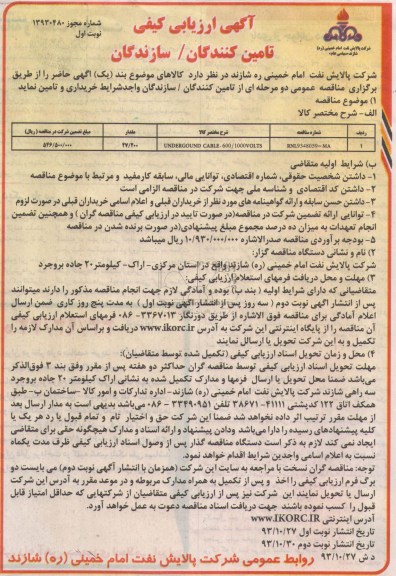 آگهی ارزیابی کیفی
تامین کنندگان / سازندگان
شماره مجوز ۱۳۹۳۰۴۸۰
نوبت اول
شرکت پالایش نفت امام خمینی (ره)
شرکت پالایش نفت امام خمینی ره شازند در نظر دارد کالاهای موضوع بند (یک) اگهی حاضر را از طریق
برگزاری مناقصه عمومی دو مرحله ای از تامین کنندگان / سازندگان واجدشرایط خریداری و تامین نماید
۱) موضوع مناقصه
الف- شرح مختصر کالا
ردیف شماره مناقصه شرح مختصر کالا مقدار مبلغ تضمین شرکت در مناقصه (ریال)
۱ UNDERGOUND CABLE- 600/1000VOLTS ۴۷/۲۰۰ ۵۴۶/۵۰۰/۰۰۰
ب) شرایط اولیه متقاضی
۱- داشتن شخصیت حقوقی، شماره اقتصادی، توانایی مالی، سابقه کارمفید و مرتبط با موضوع مناقصه
۲- داشتن کد اقتصادی و شناسه ملی جهت شرکت در مناقصه الزامی است
۳- داشتن حسن سابقه و ارائه گواهینامه های مورد نظر از خریداران قبلی و اعلام اسامی خریداران قبلی در صورت لزوم
۴- توانایی ارائه تضمین شرکت در مناقصه(در صورت تایید در ارزیابی کیفی مناقصه گران ) و همچنین تضمین
انجام تعهدات به میزان ده درصد مجموع مبلغ پیشنهادی(در صورت برنده شدن در مناقصه
۵- بودجه برآوردی مناقصه صدرالاشاره ۱۰/۹۳۰/۰۰۰/۰۰۰ ریال میباشد
۲) نام و نشانی دستگاه مناقصه گزار:
شرکت پالایش نفت امام خمینی (ره) شازند واقع در استان مرکزی- اراک- کیلومتر۲۰ جاده بروجرد
۳) مهلت و محل دریافت فرمهای استعلام ارزیابی کیفی:
متقاضیانی که دارای شرایط اولیه ( بند ب) بوده و آمادگی لازم جهت انجام مناقصه مذکور را دارند میتوانند
پس از انتشار آگهی نوبت دوم ( سه روز پس از انتشار آگهی نوبت اول ) به مدت پنج روز کاری ضمن ارسال
اعلام آمادگی برای مناقصه فوق الاشاره از طریق دورنگار ۳۳۶۷۰۱۳-۰۸۶ فرمهای استعلام ارزیابی کیفی
آن مناقصه را از پایگاه اینترنتی این شرکت به آدرس www.ikorc.ir دریافت و براساس آن مدارک لازمه را
تکمیل و به این شرکت تحویل یا ارسال نمایند
۴) محل و زمان تحویل اسناد ارزیابی کیفی (تکمیل شده توسط متقاضیان):
مهلت تحویل اسناد ارزیابی کیفی توسط مناقصه گران حداکثر دو هفته پس از مقرر وفق بند ۳ فوق‌الذکر
می‌باشد ضمنا محل تحویل یا ارسال فرمها و مدارک تکمیل شده به نشانی اراک کیلومتر ۲۰ جاده بروجرد
سه راهی شازند شرکت پالایش نفت امام خمینی (ره) شازند- اداره تدارکات و امور کالا -ساختمان ب- طبق
همکف اتاق ۱۲۲ کدپستی ۴۱۱۱۱-۳۸۶۷۱ تلفن ۳۳۴۹۰۹۵۱-۰۸۶ می‌باشد بدیهی است به مدار ارسال بعد
از مهلت مقرر ترتیب اثر داده نخواهد شد ضمنا این شرکت حق و اختیار تام و تمام قبول یا رد هر یک یا
کلیه پیشنهادهای رسیده را دارا می‌باشد ودادن پیشنهاد و ارائه اسناد و مدارک هیچگونه حقی برای متقاضی
ایجاد نمی کند لازم به ذکر است دستگاه مناقصه گذار پس از وصول اسناد ارزیابی کیفی ظرف مدت یکماه
نسبت به اعلام اسامی واجدین شرایط اقدام خواهد نمود.
توجه: مناقصه گران نسخت با مراجعه به سایت این شرکت (همزمان با انتشار آگهی نوبت دوم) می بایست دو
برگ فرم ارزیابی کیفی را اخذ و پس از تکمیل به همراه مدارک مربوطه و در موعد مقرر به آدرس این شرکت
ارسال یا تحویل نمایند این شرکت نیز پس از ارزیابی کیفی متقاضیان از شرکتهایی که حداقل امتیاز قابل
قبول را کسب نموده باشند جهت دریافت اسناد مناقصه دعوت به عمل خواهد آورد.
آدرس اینترنتی WWW.IKORC.IR
تاریخ انتشار نوبت اول ۹۳/۱۰/۲۷
تاریخ انتشار نوبت دوم ۹۳/۱۰/۳۰
د ش ۹۳/۱۰/۲۷
روابط عمومی شرکت پالایش نفت امام خمینی (ره) شازند